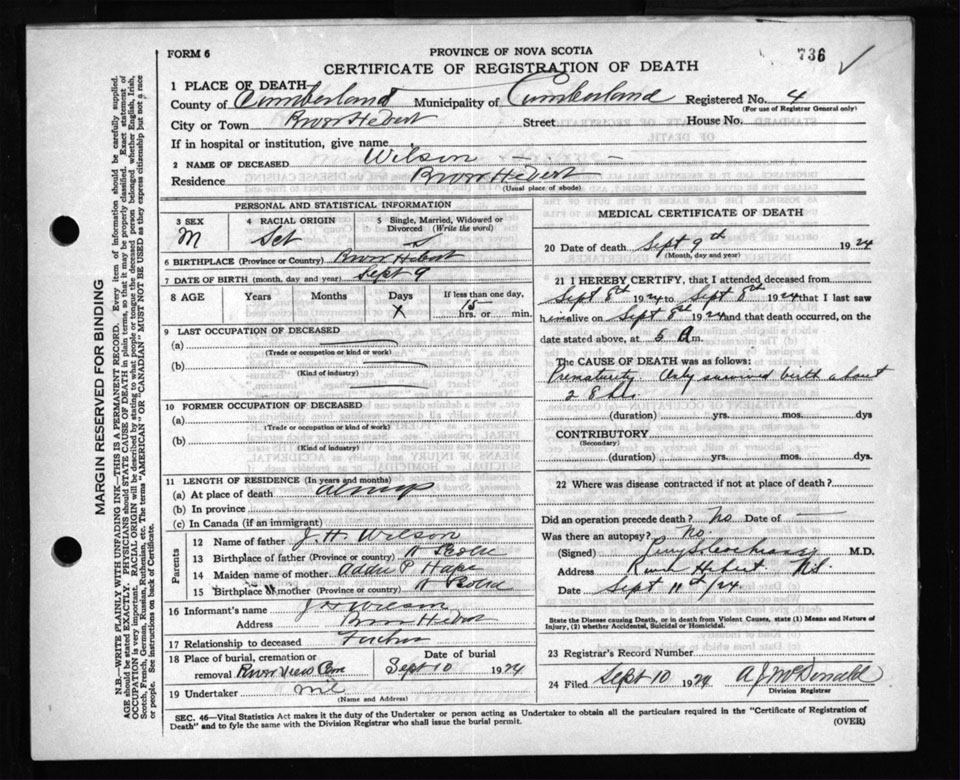 FORM 6
PROVINCE OF NOVA SCOTIA
736
CERTIFICATE OF REGISTRATION OF DEATH
1 PLACE OF DEATH
County of Cumberland Municipality of Cumberland Registered No. 4
(For use of Registrar General only)
City or Town River Hebert Street House No.
If in hospital or institution, give name
2 NAME OF DECEASED Wilson
Residence River Hebert
(Usual place of abode)
PERSONAL AND STATISTICAL INFORMATION
3 SEX
M
4 RACIAL ORIGIN
Sct
5 Single, Married, Widowed or
Divorced (Write the word)
S
6 BIRTHPLACE (Province or Country) River Hebert
7 DATE OF BIRTH (month, day and year) Sept 9
8 AGE Years Months Days If less than one day,
X 15 hrs. or min.
9 LAST OCCUPATION OF DECEASED
(a)
(Trade or occupation or kind or work)
(b)
(Kind of industry)
10 FORMER OCCUPATION OF DECEASED
(a)
(Trade or occupation or kind of work)
(b)
(Kind of industry)
11 LENGTH OF RESIDENCE (In years and months)
(a) At place of death always
(b) In province
(c) In Canada (if an immigrant)
Parents
12 Name of father J. H. Wilson
13 Birthplace of father (Province or country) N Scotia
14 Maiden name of mother Addie P.
15 Birthplace of mother (Province or country) N Scotia
16 Informant's name J H Wilson
Address River Hebert
17 Relationship to deceased Father
18 Place of burial, cremation or
removal River View Cem
Date of burial
Sept 10 1924
19 Undertaker nil
(Name and Address)
MEDICAL CERTIFICATE OF DEATH
20 Date of death Sept 9th 1924
(Month, day and year)
21 I HEREBY CERTIFY, that I attended deceased from
Sept 8th 1924 to Sept 8th 1924 that I last saw
him alive on Sept 8th 1924 and that death occurred, on the
date stated above, at 5 a m.
The CAUSE OF DEATH was as follows:
Prematurity Only survived birth about
(duration) yrs. mos. dys
CONTRIBUTORY
(Secondary)
(duration) yrs. mos. dys.
22 Where was disease contracted if not at place of death?
Did an operation precede death? No Date of
Was there an autopsy? No
(Signed) M.D.
Address River Hebert N.S.
Date Sept 11th /24
State the Disease causing Death, or in death from Violent Causes, state (1) Means and Nature of
Injury, (2) whether Accidental, Suicidal or Homicidal.
23 Registrar's Record Number
24 Filed Sept 10 1924 A J McDonald
Division Registrar
SEC. 46—Vital Statistics Act makes it the duty of the Undertaker or person acting as Undertaker to obtain all the particulars required in the "Certificate of Registration of
Death" and to fyle the same with the Division Registrar who shall issue the burial permit.
(OVER)
MARGIN RESERVED FOR BINDING
N.B.—WRITE PLAINLY WITH UNFADING INK—THIS IS A PERMANENT RECORD. Every item of information should be carefully supplied.
AGE should be stated EXACTLY. PHYSICIANS should STATE CAUSE OF DEATH in plain terms, so that it may be properly classified. Exact statement of
OCCUPATION is very important. RACIAL ORIGIN will be described by stating to what people or tongue the deceased person belonged whether English, Irish,
Scotch, French, German, Russian, Ruthenian, etc. The terms "AMERICAN" OR "CANADIAN" MUST NOT BE USED as they express citizenship but not a race
or people. See instructions on back of Certificate.